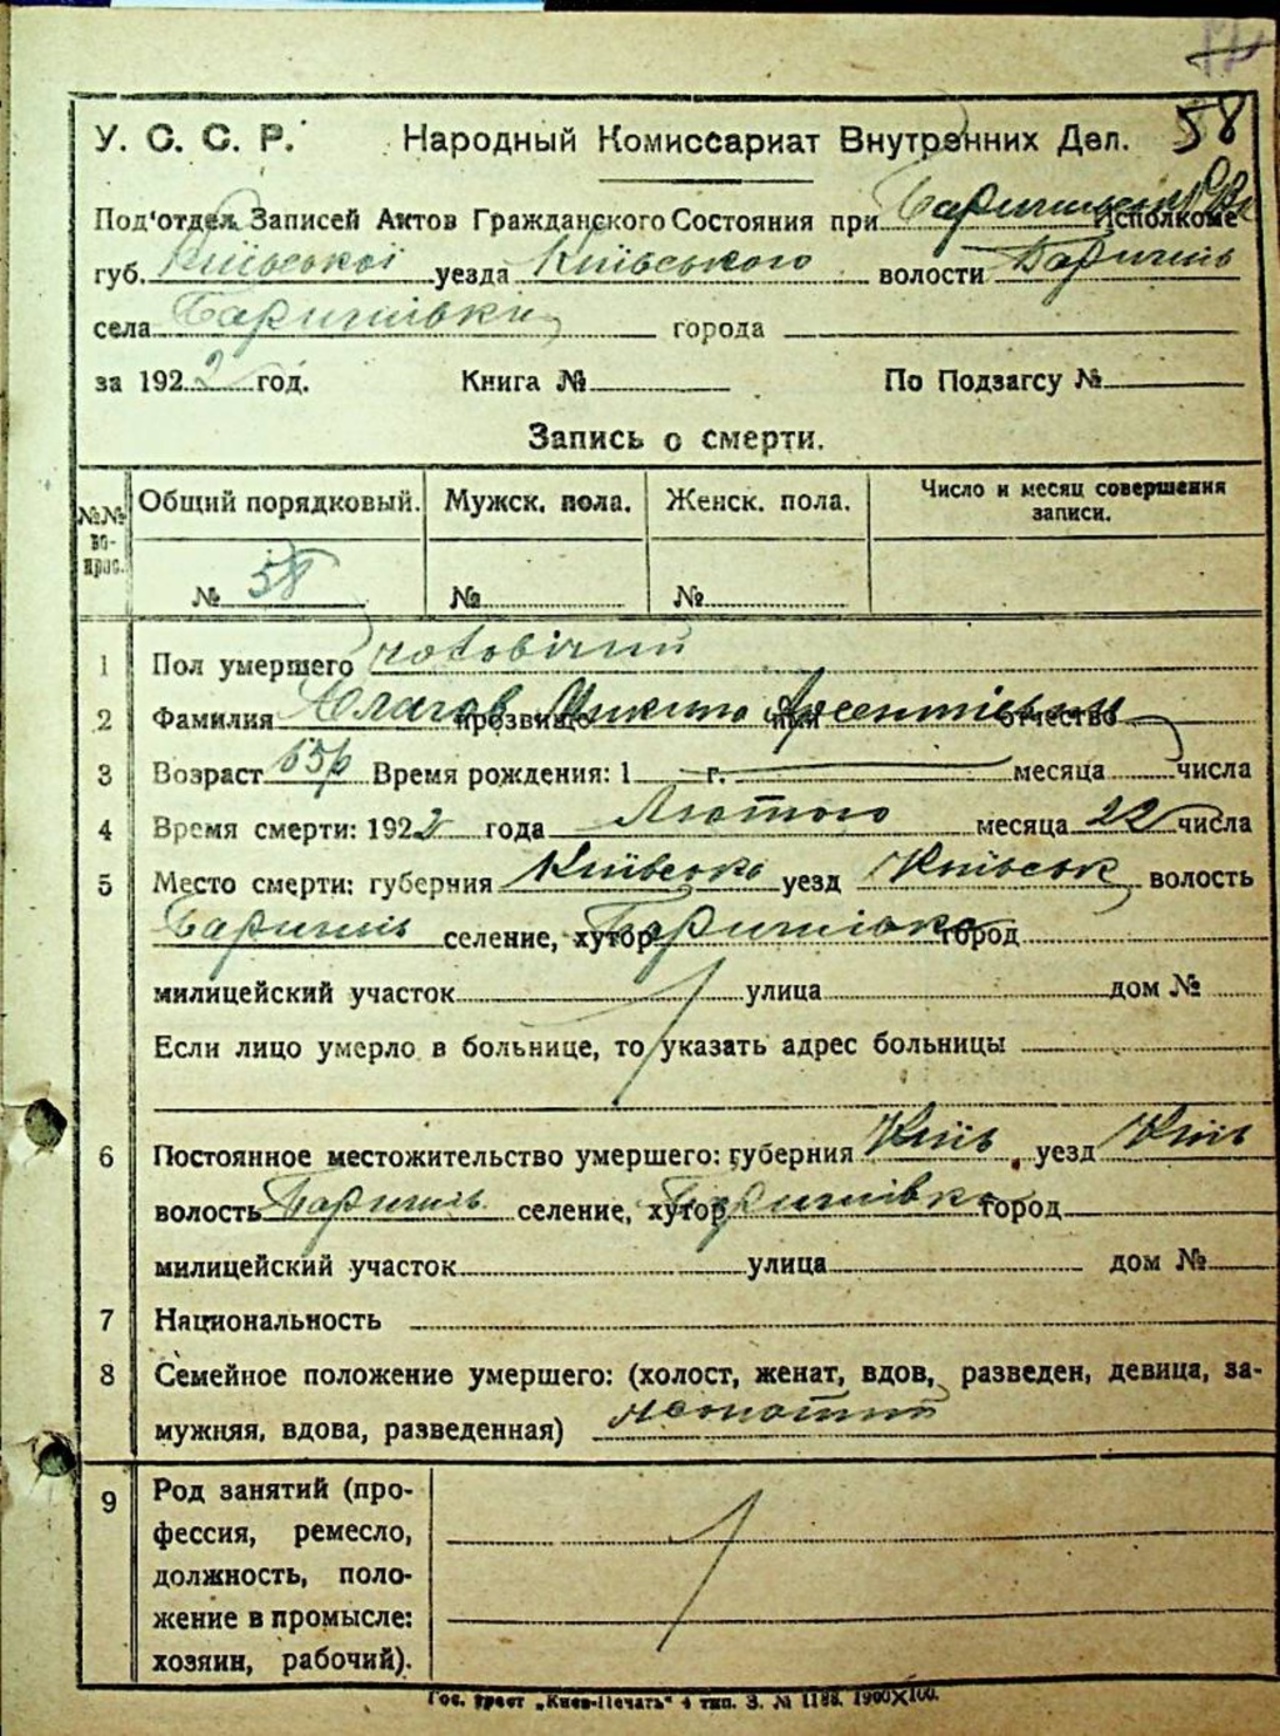 58
У. С. С. Р. Народный Комиссариат Внутренних Дел.
Под'отдел Записей Актов Гражданского Состояния при Исполкоме
губ. Київської уезда Київського волости Баришів
села Баришівки города
за 1922 год. Книга № По Подзагсу №
Запись о смерти.
№№ во- прос. Общий порядковый. Мужск. пола. Женск. пола. Число и месяц совершения записи.
№ 58 № №
1 Пол умершего чоловічий
2 Фамилия прозвище Микита имя Арсентієвич отчество
3 Возраст 65р Время рождения: 1 г. месяца числа
4 Время смерти: 1922 года Лютого месяца 22 числа
5 Место смерти: губерния Київська уезд Київськ волость
Баришів селение, хутор Баришівка город
милицейский участок улица дом №
Если лицо умерло в больнице, то указать адрес больницы
6 Постоянное местожительство умершего: губерния Київ уезд Київ
волость Баришів селение, хутор Баришівка город
милицейский участок улица дом №
7 Национальность
8 Семейное положение умершего: (холост, женат, вдов, разведен, девица, за-
мужняя, вдова, разведенная)
9 Род занятий (про-
фессия, ремесло,
должность, поло-
жение в промысле:
хозяин, рабочий).
Гос. трест „Киев-Печать“ 4 тип. З. № 1188. 1900Х100.